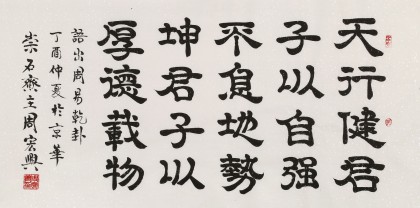 天行健君
子以自强
不息地勢
坤君子以
厚德載物
語出周易乾卦
丁酉仲夏於京華
崇石齋主周宏興